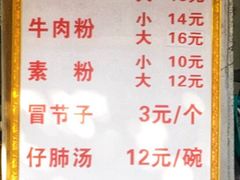 小 14元
牛肉粉
大 16元
小 10元
素 粉
大 12元
冒节子 3元/个
仔肺汤 12元/碗